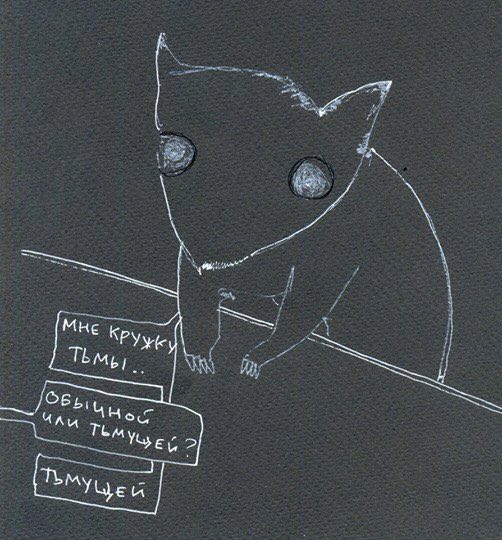 МНЕ КРУЖКУ
ТЬМЫ..
ОБЫЧНОЙ
ИЛИ ТЬМУЩЕЙ?
ТЬМУЩЕЙ